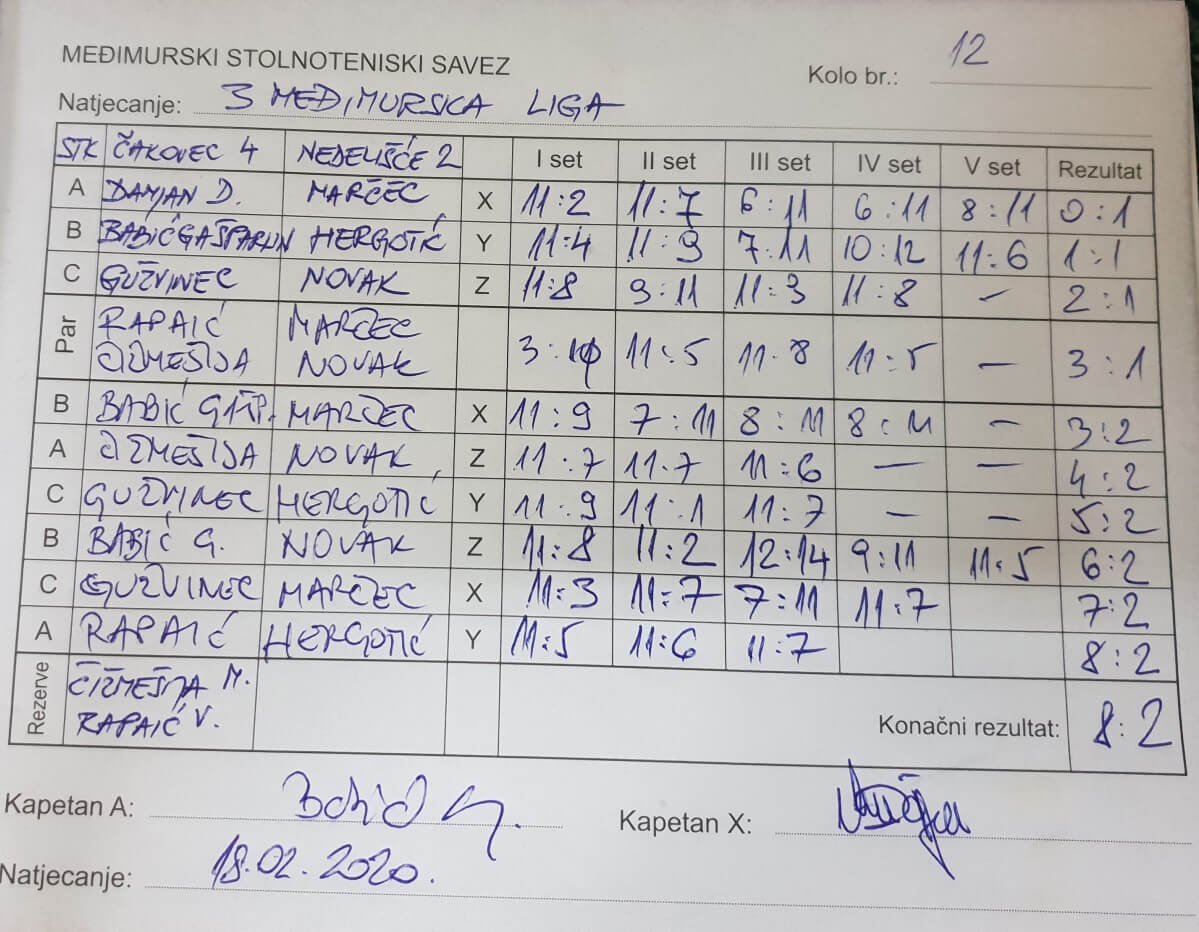 MEĐIMURSKI STOLNOTENISKI SAVEZ
Kolo br.: 12
Natjecanje: 3 MEĐIMURSKA LIGA
STK ČAKOVEC 4 NEDELIŠĆE 2 I set II set III set IV set V set Rezultat
A DAMJAN D. MARČEC X 11:2 11:7 6:11 6:11 8:11 0:1
B BABIĆ GAŠPARLIN HERGOTIĆ Y 11:4 11:9 7:11 10:12 11:6 1:1
C GUŽVINEC NOVAK Z 11:8 9:11 11:9 11:8 – 2:1
Par RAPAIĆ MARČEC
ČIZMEŠIJA NOVAK 11:5 11:8 11:5 – 3:1
B BABIĆ GAŠP. MARČEC X 11:9 7:11 8:11 8:11 – 3:2
A ČIZMEŠIJA NOVAK Z 11:7 11:7 11:6 – – 4:2
C GUŽVINEC HERGOTIĆ Y 11:9 11:1 11:7 – – 5:2
B BABIĆ G. NOVAK Z 11:8 11:2 12:14 9:11 11:5 6:2
C GUŽVINEC MARČEC X 11:3 11:7 7:11 11:7 7:2
A RAPAIĆ HERGOTIĆ Y 11:5 11:6 11:7 8:2
Rezerve ČIZMEŠIJA M.
RAPAIĆ V.
Konačni rezultat: 8:2
Kapetan A:
Kapetan X:
Natjecanje: 18.02.2020.